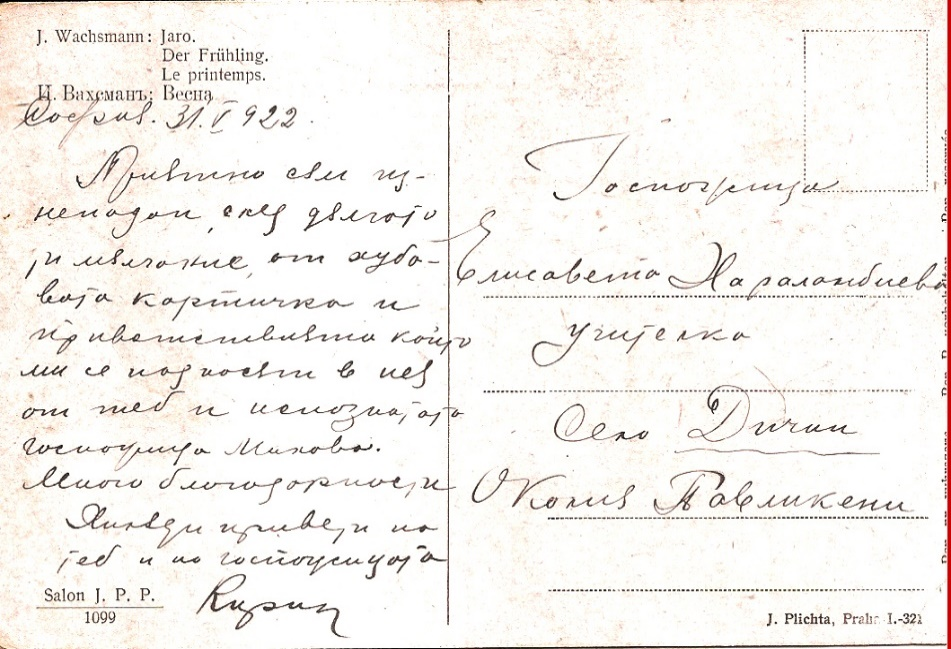 J. Wachsmann: Jaro.
Der Frühling.
Le printemps.
И. Вахсманъ: Весна
София. 31.V 922.
Приятно съм из-
ненадан, след дългото
ти мълчание, от хуба-
вата картичка и
приветствията които
ми се подносят в нея
от теб и непознатата
госпожица Минова.
Много благодарности
Хиляди привети на
теб и на госпожицата
Кирил
Salon J. P. P.
1099
Госпожица
Елисавета Хараланбиева
Учителка
Село Дичин
Околия Павликени
J. Plichta, Praha I.-321